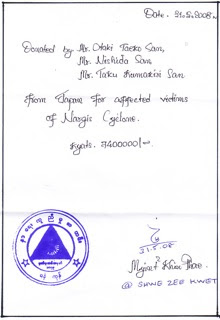 Date. 31.5.2008
Donated by Mr. Otaki Taeko San,
Mr. Nishida San
Mr. Taku Kumakiri San
From Japan for affected victims
of Nargis Cyclone.
Kyats. 3400000/-
31.5.08
@ SHWE ZEE KWET